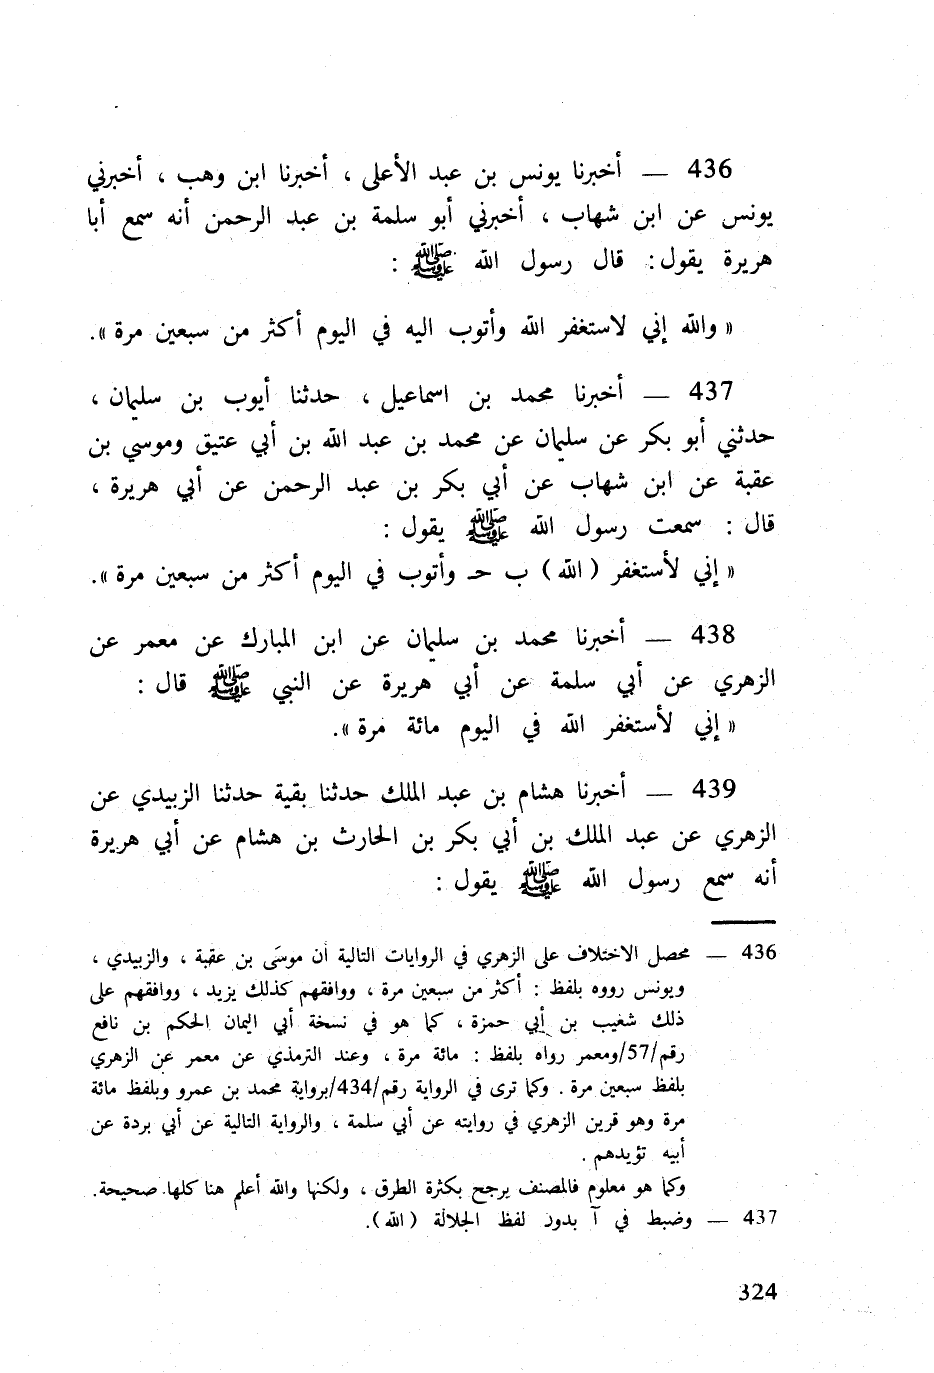 436 — أخبرنا يونس بن عبد الأعلى ، أخبرنا ابن وهب ، أخبرني
يونس عن ابن شهاب ، أخبرني أبو سلمة بن عبد الرحمن أنه سمع أبا
هريرة يقول: قال رسول الله ﷺ :
« والله إني لاستغفر الله وأتوب اليه في اليوم أكثر من سبعين مرة ».
437 — أخبرنا محمد بن اسماعيل ، حدثنا أيوب بن سليمان ،
حدثني أبو بكر عن سليمان عن محمد بن عبد الله بن أبي عتيق وموسي بن
عقبة عن ابن شهاب عن أبي بكر بن عبد الرحمن عن أبي هريرة ،
قال : سمعت رسول الله ﷺ يقول :
« إني لأستغفر ( الله ) ب حـ وأتوب في اليوم أكثر من سبعين مرة ».
438 — أخبرنا محمد بن سليمان عن ابن المبارك عن معمر عن
الزهري عن أبي سلمة عن أبي هريرة عن النبي ﷺ قال :
« إني لأستغفر الله في اليوم مائة مرة ».
439 — أخبرنا هشام بن عبد الملك حدثنا بقية حدثنا الزبيدي عن
الزهري عن عبد الملك بن أبي بكر بن الحارث بن هشام عن أبي هريرة
أنه سمع رسول الله ﷺ يقول :
436 — محصل الاختلاف على الزهري في الروايات التالية أن موسَى بن عقبة ، والزبيدي ،
ويونس رووه بلفظ : أكثر من سبعين مرة ، ووافقهم كذلك يزيد ، ووافقهم على
ذلك شعيب بن أبي حمزة ، كما هو في نسخة أبي اليمان الحكم بن نافع
رقم/57/ومعمر رواه بلفظ : مائة مرة ، وعند الترمذي عن معمر عن الزهري
بلفظ سبعين مرة . وكما ترى في الرواية رقم/434/برواية محمد بن عمرو وبلفظ مائة
مرة وهو قرين الزهري في روايته عن أبي سلمة ، والرواية التالية عن أبي بردة عن
أبيه تؤيدهم .
وكما هو معلوم فالمصنف يرجح بكثرة الطرق ، ولكنها والله أعلم هنا كلها صحيحة.
437 — وضبط في آ بدون لفظ الجلالة ( الله ).
324